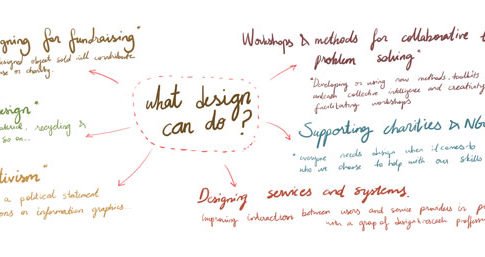 gning for fundraising"
esigned object sold will contribute
use or charity.
esign"
recycling &
so on..
tivism"
a political statement
ons or information graphics
what design
can do?
Workshops & methods for collaborative
problem solving"
"Developing or using new methods, toolkits
unleash collective intelligence and creativity
facilitating workshops
Supporting charities & NG
"everyone needs design when it comes to
who we choose to help with our skills
Designing services and systems.
Improving interaction between users and service providers in
with a group of design & research